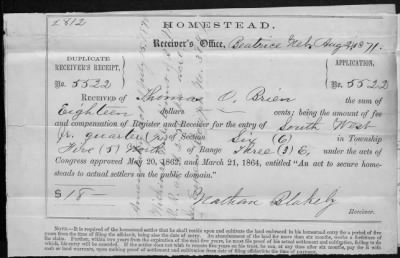 2812
HOMESTEAD.
Receiver's Office, Beatrice Neb, Aug 2 1871.
DUPLICATE
RECEIVER'S RECEIPT,
No. 5522
APPLICATION,
No. 5522
RECEIVED OF Thomas O. Brien the sum of
Eighteen dollars cents; being the amount of fee
and compensation of Register and Receiver for the entry of South West
fr. quarter of Section Six (6) in Township
Five (5) North of Range Three (3) E, under the acts of
Congress approved May 20, 1862, and March 21, 1864, entitled "An act to secure home-
steads to actual settlers on the public domain."
$ 18
Nathan Blakely
Receiver.
NOTE.—It is required of the homestead settler that he shall reside upon and cultivate the land embraced in his homestead entry for a period of five
years from the time of filing the affidavit, being also the date of entry. An abandonment of the land for more than six months, works a forfeiture of
the claim. Further, within two years from the expiration of the said five years, he must file proof of his actual settlement and cultivation, failing to do
which, his entry will be cancelled. If the settler does not wish to remain five years on his tract, he can, at any time after six months, pay for it with
cash or land warrants, upon making proof of settlement and cultivation from date of filing affidavit to the time of payment.